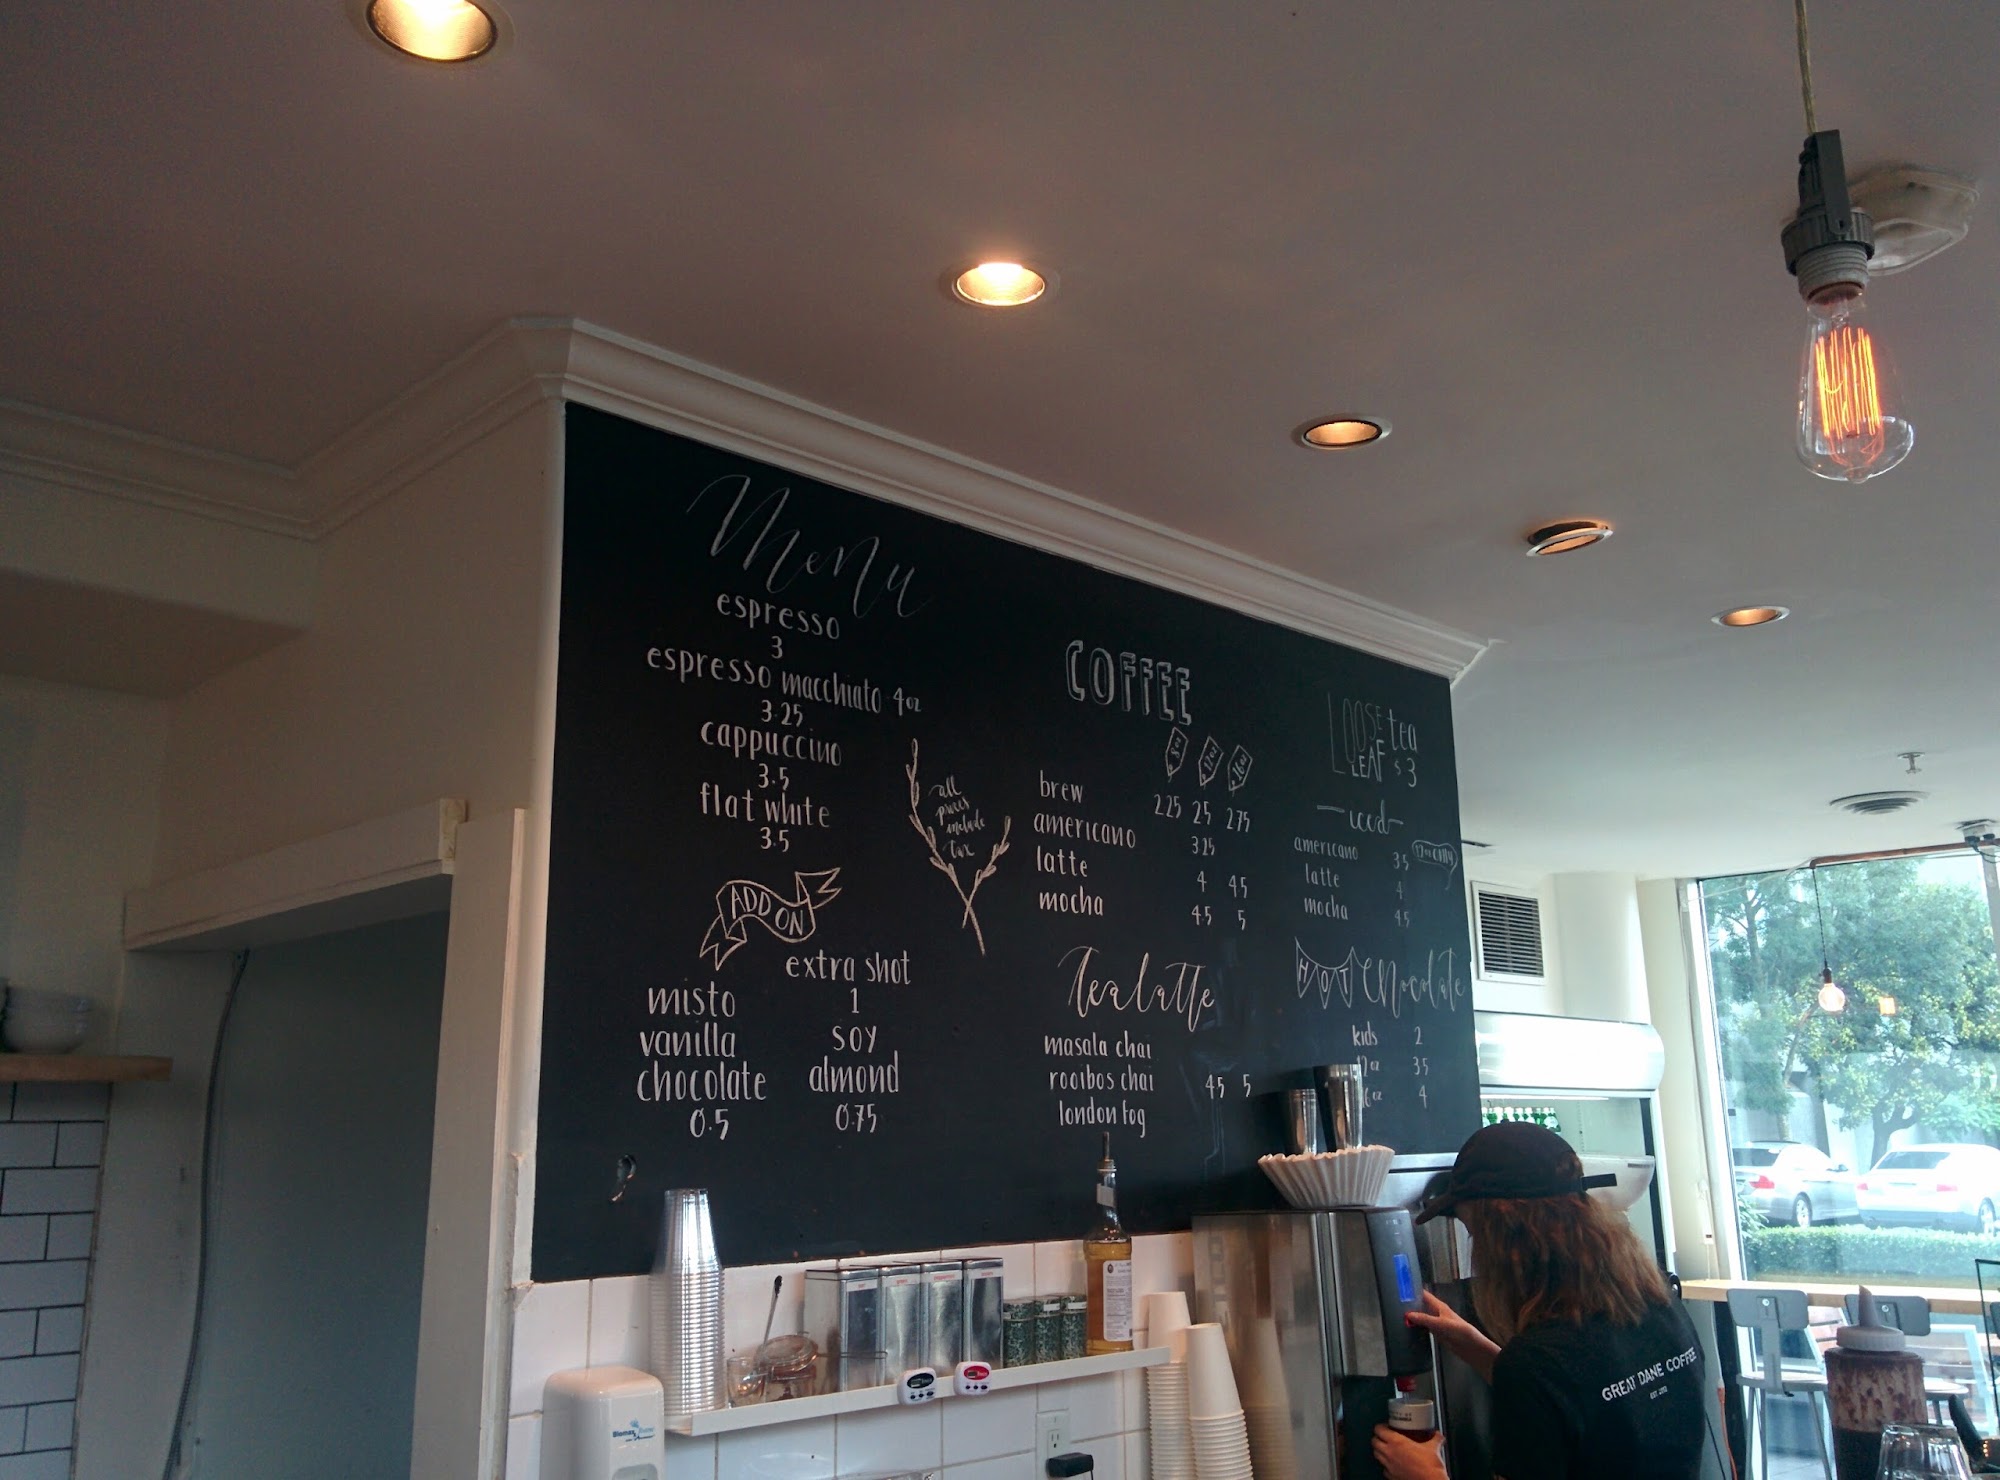 Menu
espresso
3
espresso macchiato 4oz
3.25
cappuccino
3.5
flat white
3.5
all
prices
include
tax
ADD ON
misto
vanilla
chocolate
0.5
extra shot
1
soy
almond
0.75
COFFEE
8oz 12oz 16oz
brew 2.25 2.5 2.75
americano 3.25
latte 4 4.5
mocha 4.5 5
tea latte
masala chai
rooibos chai 4.5 5
london fog
LOOSE LEAF tea $3
iced
americano 3.5 12oz only
latte 4
mocha 4.5
HOT chocolate
kids 2
12oz 3.5
16oz 4
GREAT DANE COFFEE